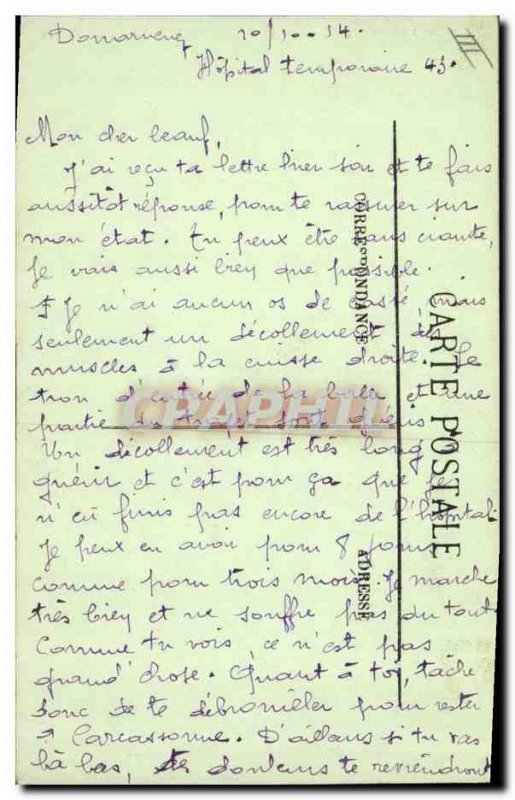 Douarnenez 20/10-14.
III
Hôpital temporaire 43.
Mon cher beauf,
J'ai reçu ta lettre hier soir et te fais
aussitôt réponse, pour te rassurer sur
mon état. Tu peux être sans crainte,
Je vais aussi bien que possible.
Je n'ai aucun os de cassé mais
seulement un décollement des
muscles à la cuisse droite. Le
trou d'entrée de la balle et une
partie du sont guéris
Un décollement est très long
guérir et c'est pour ça que je
n'en finis pas encore de l'hôpital.
Je peux en avoir pour 8 jours
comme pour trois mois. Je marche
très bien et ne souffre pas du tout
Comme tu vois, ce n'est pas
grand'chose. Quant à toi, tâche
donc de te débrouiller pour rester
à Carcassonne. D'ailleurs si tu vas
là bas, les douleurs te reviendront
CARTE POSTALE
CORRESPONDANCE
ADRESSE
CPAPHIL